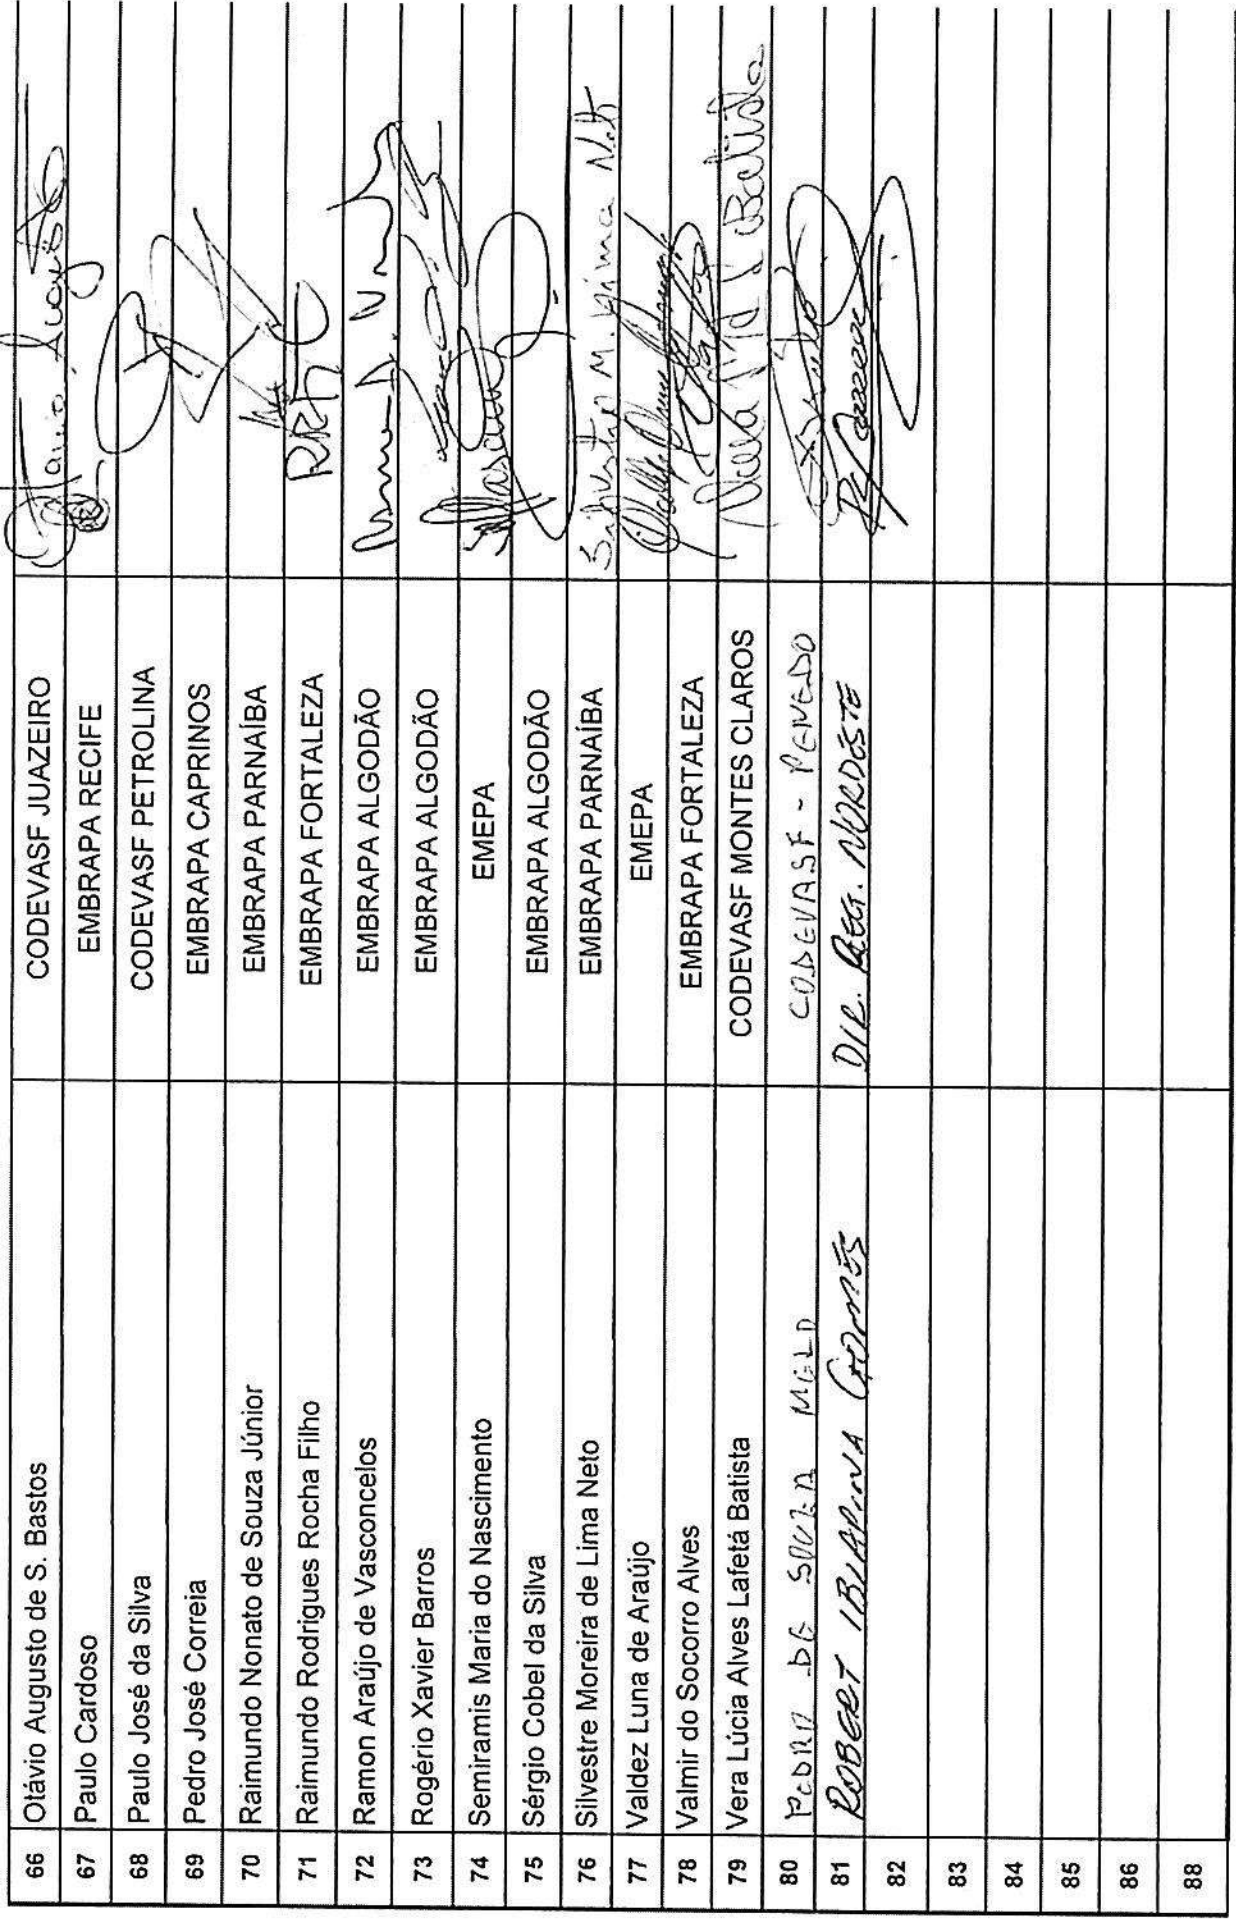 66 Otávio Augusto de S. Bastos CODEVASF JUAZEIRO
67 Paulo Cardoso EMBRAPA RECIFE
68 Paulo José da Silva CODEVASF PETROLINA
69 Pedro José Correia EMBRAPA CAPRINOS
70 Raimundo Nonato de Souza Júnior EMBRAPA PARNAÍBA
71 Raimundo Rodrigues Rocha Filho EMBRAPA FORTALEZA RRF
72 Ramon Araújo de Vasconcelos EMBRAPA ALGODÃO
73 Rogério Xavier Barros EMBRAPA ALGODÃO
74 Semiramis Maria do Nascimento EMEPA
75 Sérgio Cobel da Silva EMBRAPA ALGODÃO
76 Silvestre Moreira de Lima Neto EMBRAPA PARNAÍBA Silvestre M. Lima Neto
77 Valdez Luna de Araújo EMEPA
78 Valmir do Socorro Alves EMBRAPA FORTALEZA
79 Vera Lúcia Alves Lafetá Batista CODEVASF MONTES CLAROS Batista
80 PEDRO DE SOUZA MELO CODEVASF - PENEDO
81 ROBERT IBIAPINA GOMES DIR. REG. NORDESTE
82
83
84
85
86
88